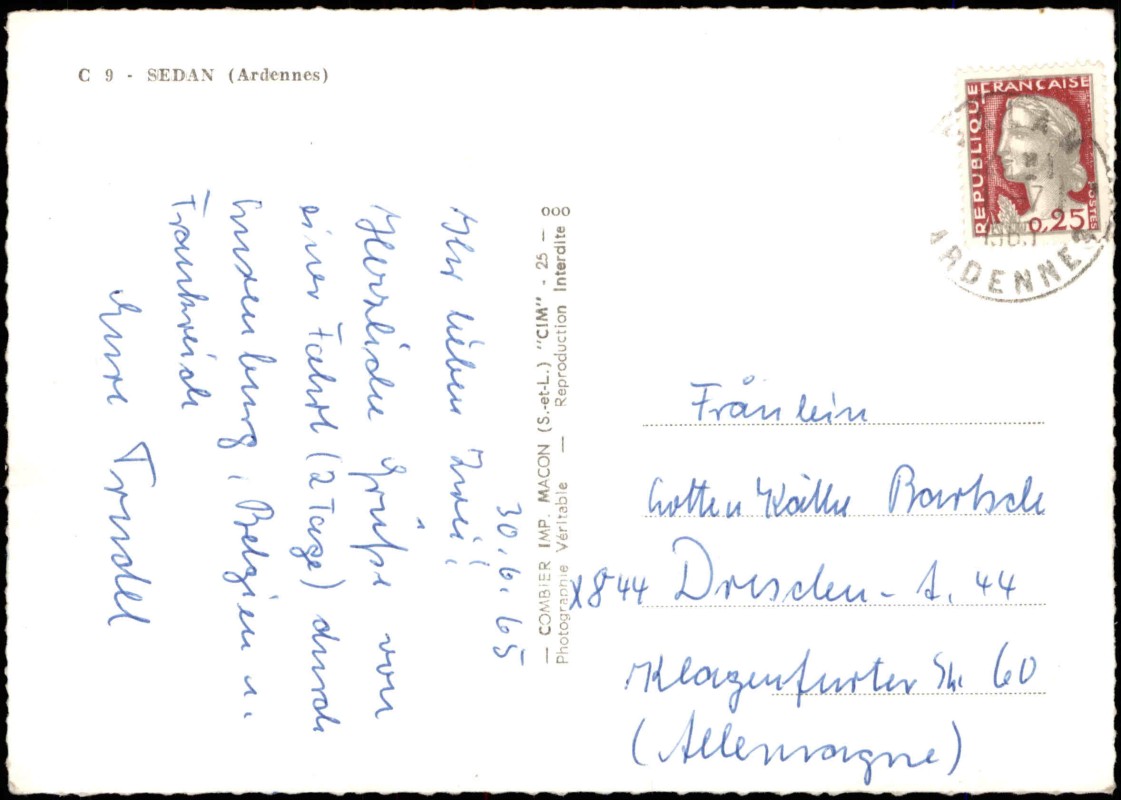 C 9 - SEDAN (Ardennes)
30.6.65
Ihr lieben Zwei!
Herzliche Grüße von
einer Fahrt (2 Tage) durch
Luxemburg, Belgien u.
Frankreich
Eure Trudel
— COMBIER IMP. MACON (S.-et-L.) "CIM" - 25 — 000
Photographie Véritable — Reproduction Interdite
REPUBLIQUE FRANÇAISE
0,25
POSTES
ARDENNES
Fräulein
Lotten Käthe Bartsch
X844 Dresden - A. 44
Klagenfurter Str. 60
(Allemagne)